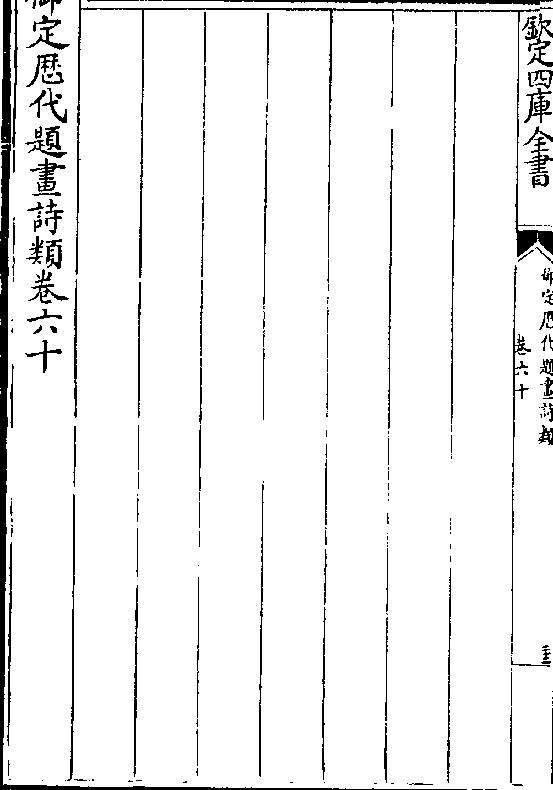 欽定四庫全書
御定歷代題畫詩類
卷六十
御定歷代題畫詩類卷六十